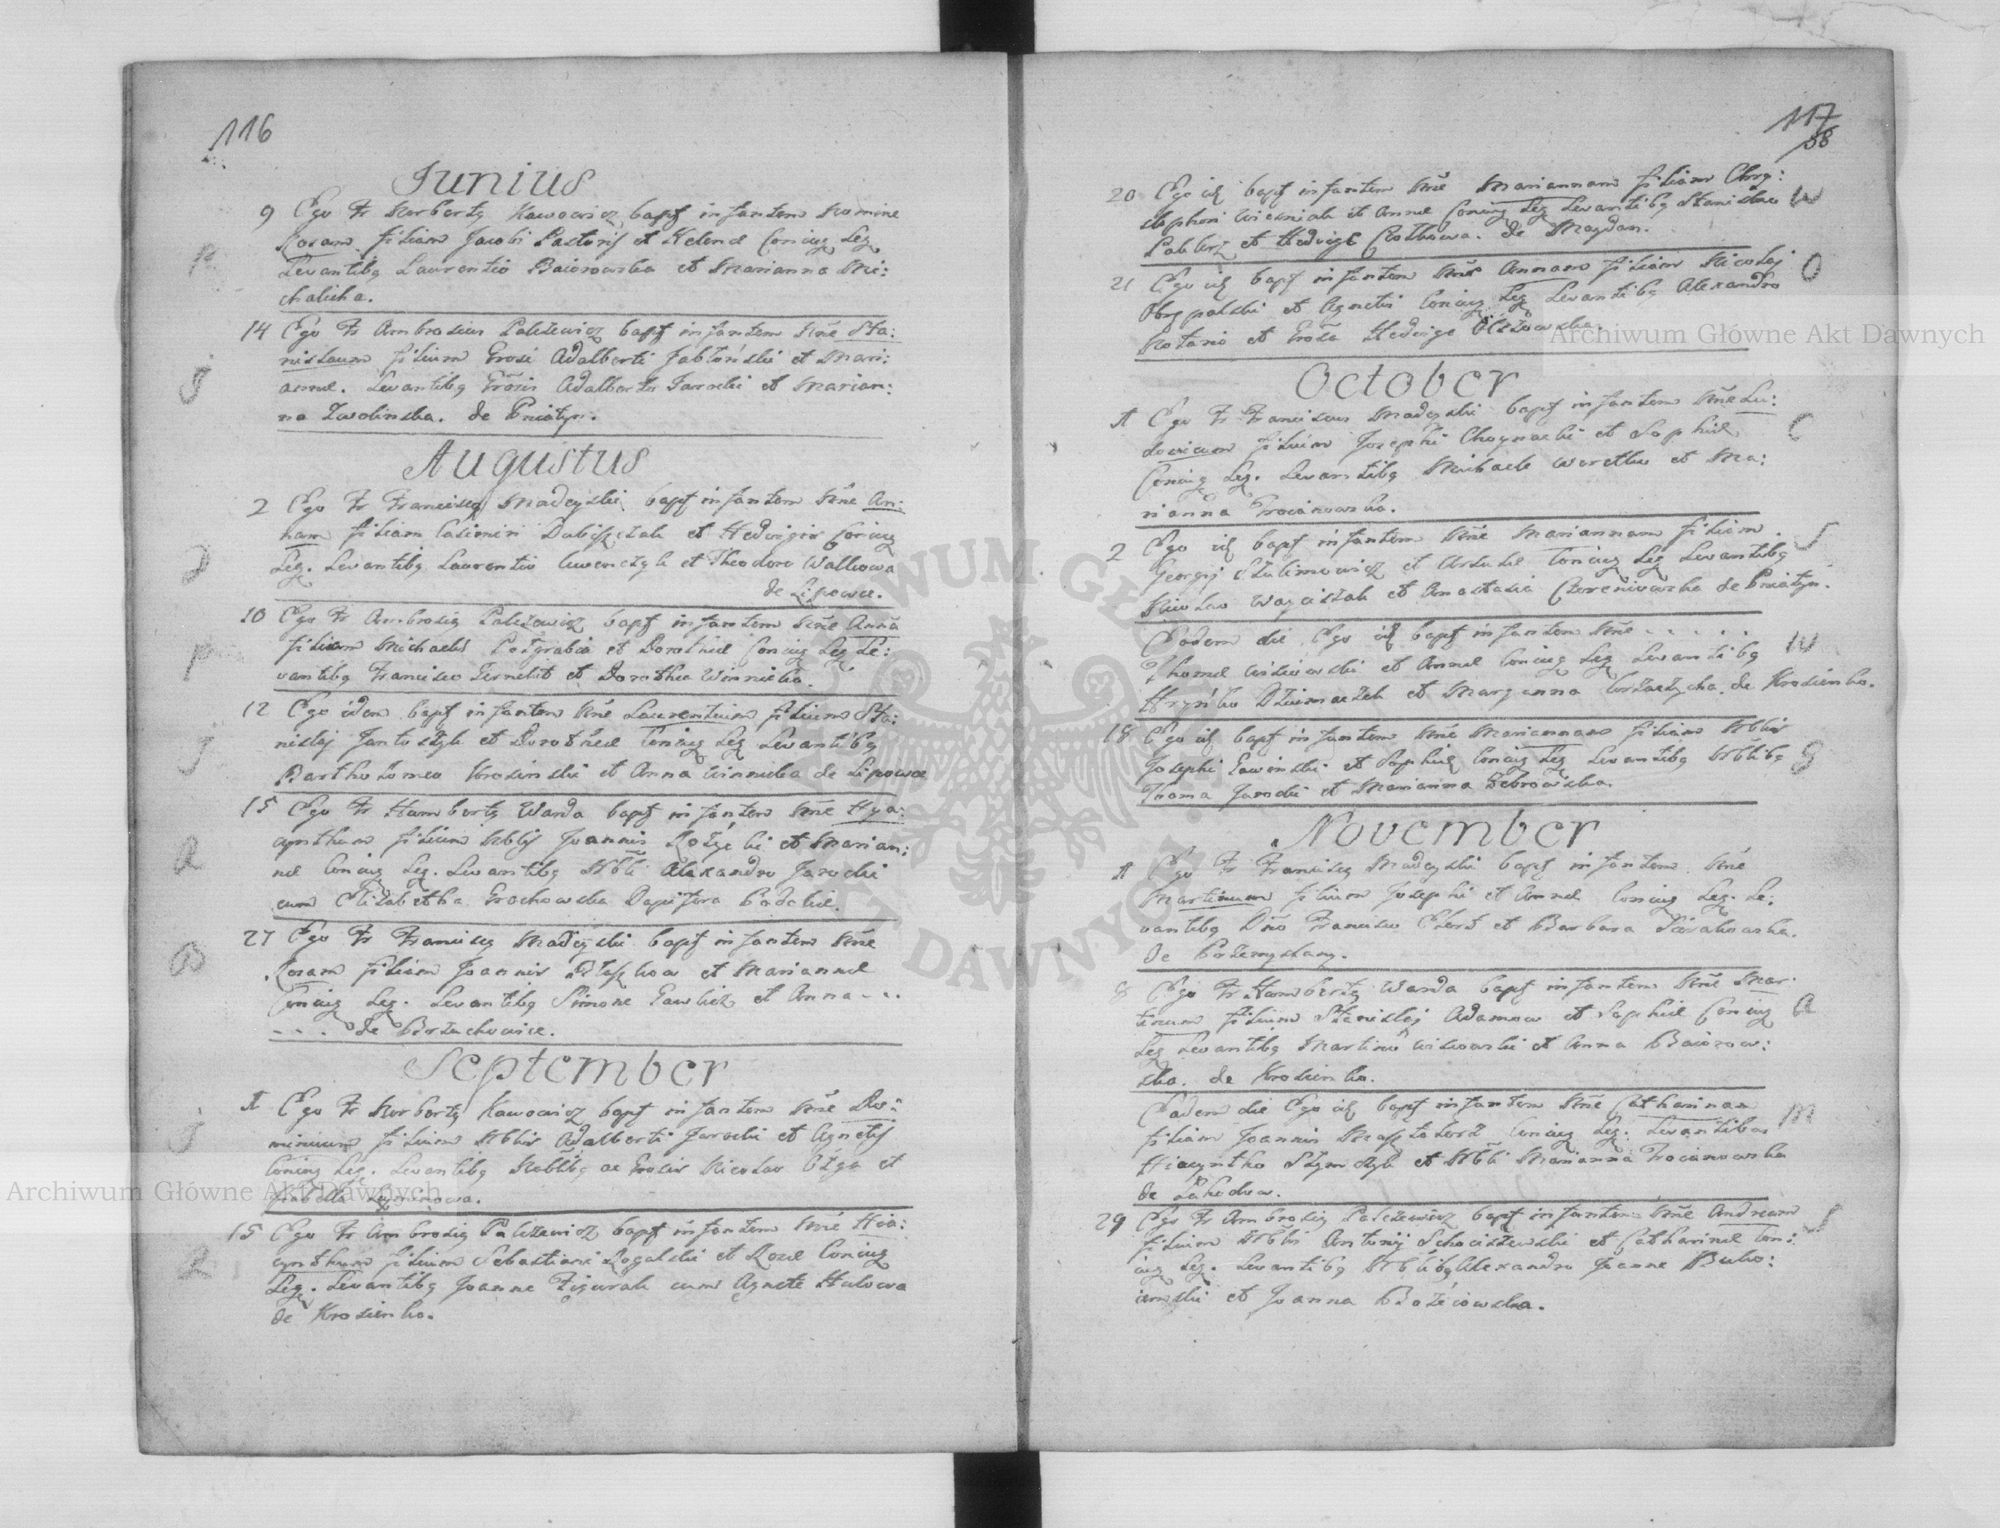 116
Junius
9 Ego Fr Norbertg Kawowicz bapt infantem Nomine
Rosam filiam Jacobi Pastoris et Helenæ Coniug Leg
Levantibg Laurentio Baiorowska et Marianna Mi:
chalicha.
14 Ego Fr Ambrosius Palczewicz bapt infantem Nne Sta:
nislaum filium Grosi Adalberti Jabłoński et Mari:
annæ. Levantibg Grosis Adalberto Jarocki et Marian:
na Zwolinska. de Pniatyn.
Augustus
2 Ego Fr Franciscg Madeyski bapt infantem Nne An:
nam filiam Casimiri Dubiszczak et Hedvigis Coniug
Leg. Levantibg Laurentio et Theodora Walkowa
de Lipowce.
10 Ego Fr Ambrosig Palczewicz bapt infantem Nne Anna
filiam Michaelis Podgrabia et Dorotheæ Coniug Leg Le:
vantibg Francisco et Dorothea Winnicka.
12 Ego idem bapt infantem Nne Laurentium filium Sta:
nislaj et Dorotheæ Coniug Leg Levantibg
Bartholomeo Krosinski et Anna Winnicka de Lipowce
15 Ego Fr Humbertg Warda bapt infantem Nne Hya:
cynthum filium Nblis Joannis Rożycki et Marian:
næ Coniug Leg. Levantibg Nbli Alexandro Jarocki
cum Elizabetha Grochowska Dapifera Podoliæ.
27 Ego Fr Franciscg Madeyski bapt infantem Nne
Rosam filiam Joannis et Mariannæ
Coniug Leg. Levantibg Simone Gawlicz et Anna ...
... de Borzuchowice.
September
1 Ego Fr Norbertg Kawowicz bapt infantem Nne Do:
minicum filium Nblis Adalberti Jarocki et Agnetis
Coniug Leg. Levantibg Nobilibg ac Grosis Nicolao et

15 Ego Fr Ambrosig Palczewicz bapt infantem Nne Hia:
cynthum filium Sebastiani Rogalski et Rosæ Coniug
Leg. Levantibg Joanne Figurak cum Agnete Halowa
de Krosienko.
117
58
20 Ego id bapt infantem Nne Mariannam filiam Chry:
stophori Wiekniak et Annæ Coniug Leg Levantibg Stanislao
et Hedvige de Magdan.
21 Ego id bapt infantem Nne Annam filiam Nicolaj
et Agnetis Coniug Leg Levantibg Alexandro
et Grosa Hedvige Olszowska.
October
1 Ego Fr Franciscus Madeyski bapt infantem Nne Lu:
dovicum filium Josephi Choynacki et Sophiæ
Coniug Leg. Levantibg Michaele et Ma:
rianna Trocianowska.
2 Ego id bapt infantem Nne Mariannam filiam
Georgij et Coniug Leg Levantibg
Nicolao Woyciszak et Anastasia de Pniatyn.
Eadem die Ego id bapt infantem Nne .....
Thomæ Wisłowski et Annæ Coniug Leg Levantibg
Hryńko et Maryanna de Krosienko.
18 Ego id bapt infantem Nne Mariannam filiam Nblis
Josephi Gawinski et Sophiæ Coniug Leg Levantibg Nblibg
Thoma Jarocki et Marianna Zebrowska.
November
1 Ego Fr Franciscg Madeyski bapt infantem Nne
Martinum filium Josephi et Annæ Coniug Leg. Le:
vantibg Dno Francisco Ebert et Barbara
de Przemyslany.
8 Ego Fr Humbertg Warda bapt infantem Nne Mar:
tinum filium Stanislaj Adamow et Sophiæ Coniug
Leg Levantibg Martino Wisłowski et Anna Baiorow:
ska. de Krosienko.
Eadem die Ego id bapt infantem Nne Catharinam
filiam Joannis Coniug Leg: Levantibus
Hiacyntho Szymczyk et Nbli Marianna Trocianowska

29 Ego Fr Ambrosig Palczewicz bapt infantem Nne Andream
filium Nblis Antonij et Catharinæ Con:
iug Leg. Levantibg Nblibg Alexandro Joanne Buko:
iemski et Joanna Bożeiowska.
Archiwum Główne Akt Dawnych
Archiwum Główne Akt Dawnych
ARCHIWUM GŁÓWNE AKT DAWNYCH